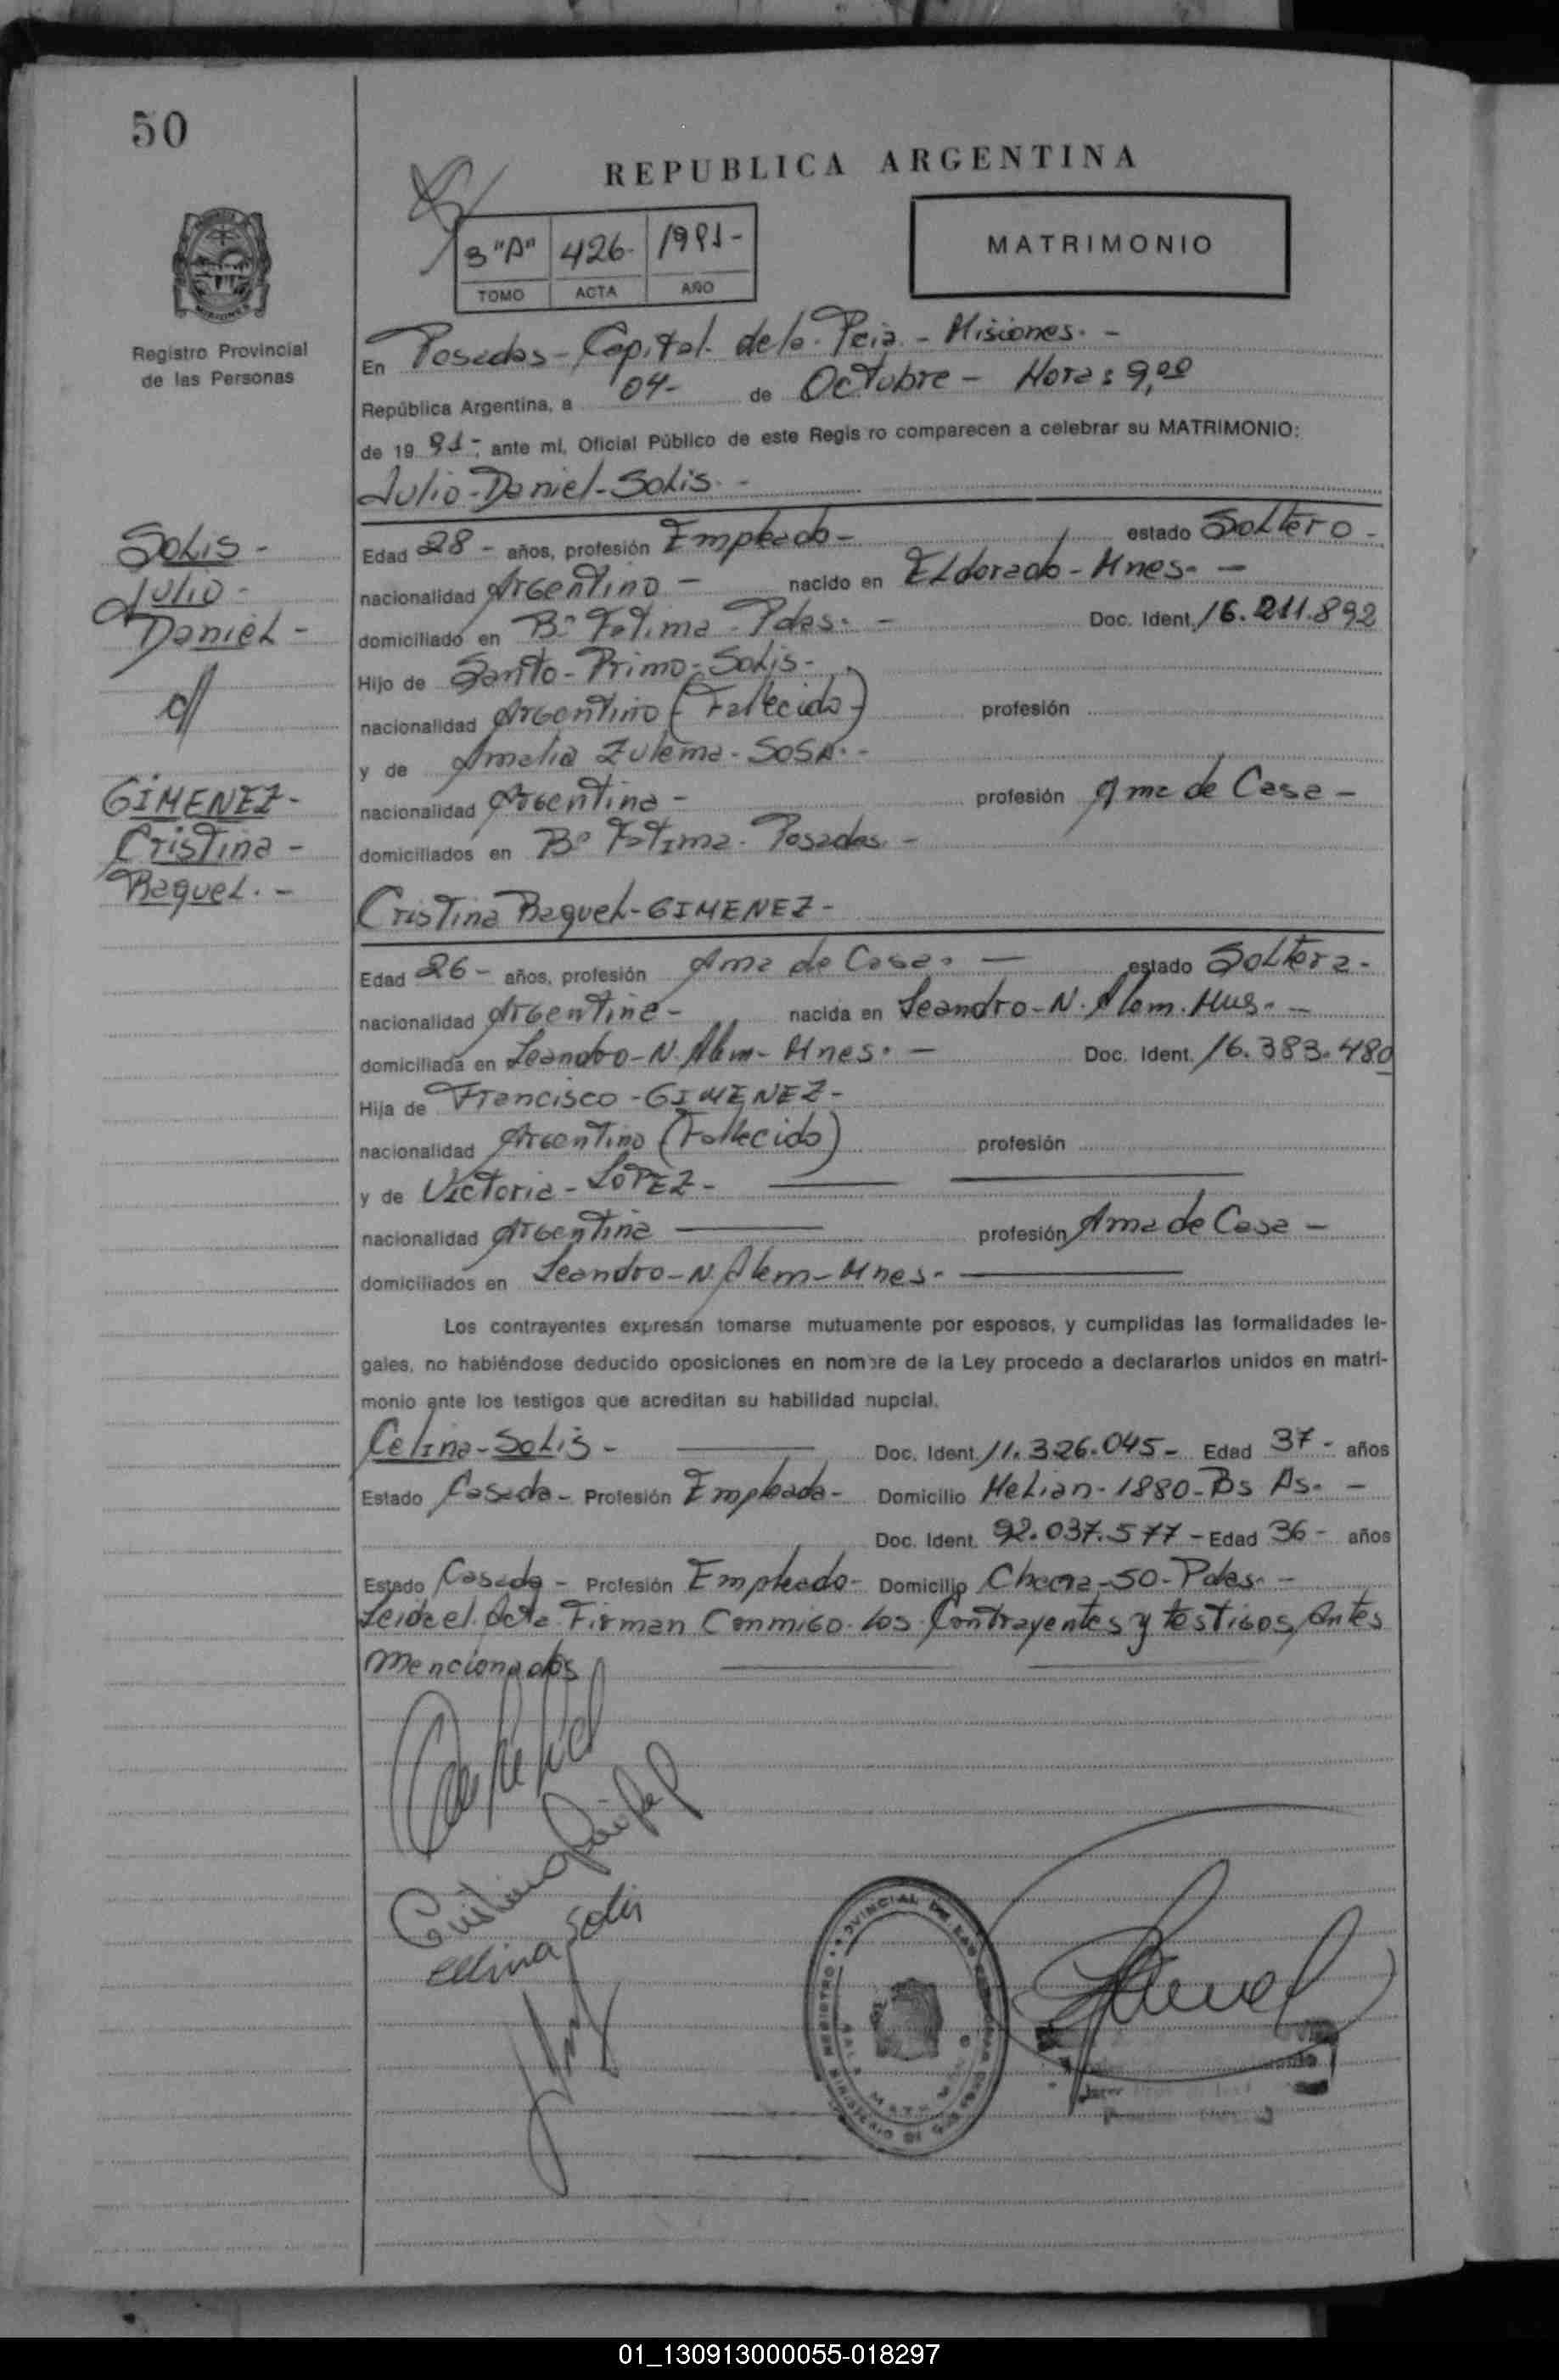 50
REPUBLICA ARGENTINA
3 "A" 426- 1991-
TOMO ACTA AÑO
MATRIMONIO
Registro Provincial
de las Personas
En Posadas - Capital de la Pcia. - Misiones. -
República Argentina, a 04- de Octubre - Hora: 9,00
de 19 91-, ante mí, Oficial Público de este Regis ro comparecen a celebrar su MATRIMONIO:
Julio - Daniel - Solis. -
Solis -
Julio -
Daniel -
c/
GIMENEZ -
Cristina -
Raquel. -
Edad 28 - años, profesión Empleado - estado Soltero -
nacionalidad Argentino - nacido en Eldorado - Mnes. -
domiciliado en B° Fatima - Pdas. - Doc. Ident. 16.211.892
Hijo de Santo - Primo - Solis -
nacionalidad Argentino (Fallecido) profesión
y de Amalia Zulema - SOSA. -
nacionalidad Argentina - profesión Ama de Casa -
domiciliados en B° Fatima - Posadas -
Cristina Raquel - GIMENEZ -
Edad 26 - años, profesión Ama de Casa. - estado Soltera -
nacionalidad Argentina - nacida en Leandro - N. Alem. Mns. -
domiciliada en Leandro - N. Alem - Mnes. - Doc. Ident. 16.383.480
Hija de Francisco - GIMENEZ -
nacionalidad Argentino (Fallecido) profesión
y de Victoria - LOPEZ -
nacionalidad Argentina profesión Ama de Casa -
domiciliados en Leandro - N. Alem - Mnes -
Los contrayentes expresan tomarse mutuamente por esposos, y cumplidas las formalidades le-
gales, no habiéndose deducido oposiciones en nombre de la Ley procedo a declararlos unidos en matri-
monio ante los testigos que acreditan su habilidad nupcial.
Celina - Solis - Doc. Ident. 11.326.045 - Edad 37 - años
Estado Casada - Profesión Empleada - Domicilio Melian - 1880 - Bs As. -
Doc. Ident. 92.037.577 - Edad 36 - años
Estado Casado - Profesión Empleado - Domicilio Chacra - 50 - Pdas. -
Leida el Acta Firman Conmigo los Contrayentes y testigos Antes
mencionados
Celina Solis
01_130913000055-018297